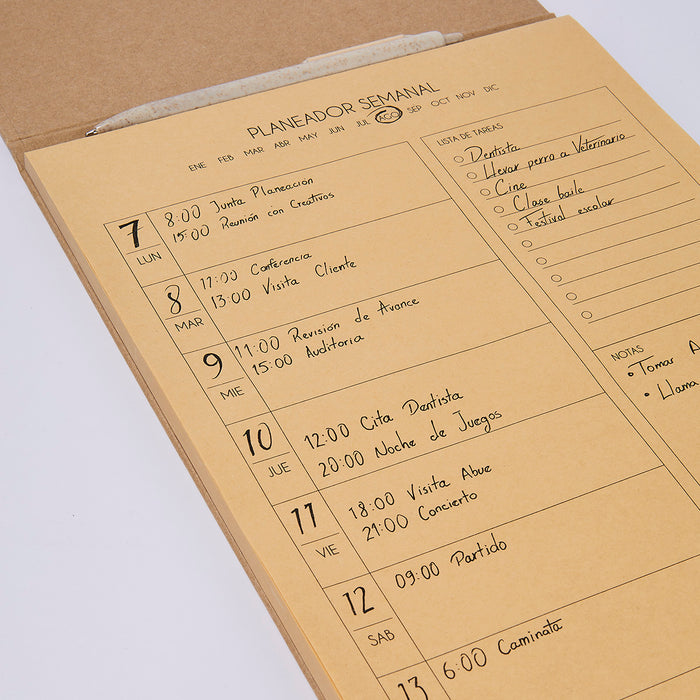 PLANEADOR SEMANAL
ENE FEB MAR ABR MAY JUN JUL AGO SEP OCT NOV DIC
7 LUN
8:00 Junta Planeación
15:00 Reunión con Creativos
8 MAR
13:00 Visita Cliente
Conferencia
9 MIE
11:00 Revisión de Avance
15:00 Auditoria
10 JUE
12:00 Cita Dentista
20:00 Noche de Juegos
11 VIE
18:00 Visita Abue
21:00 Concierto
12 SAB
09:00 Partido
13
6:00 Caminata
LISTA DE TAREAS
Dentista
Llevar perro a Veterinario
Cine
Clase baile
Festival escolar
NOTAS
• Tomar A
• Llama